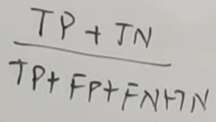 TP + TN
TP + FP + FN + TN